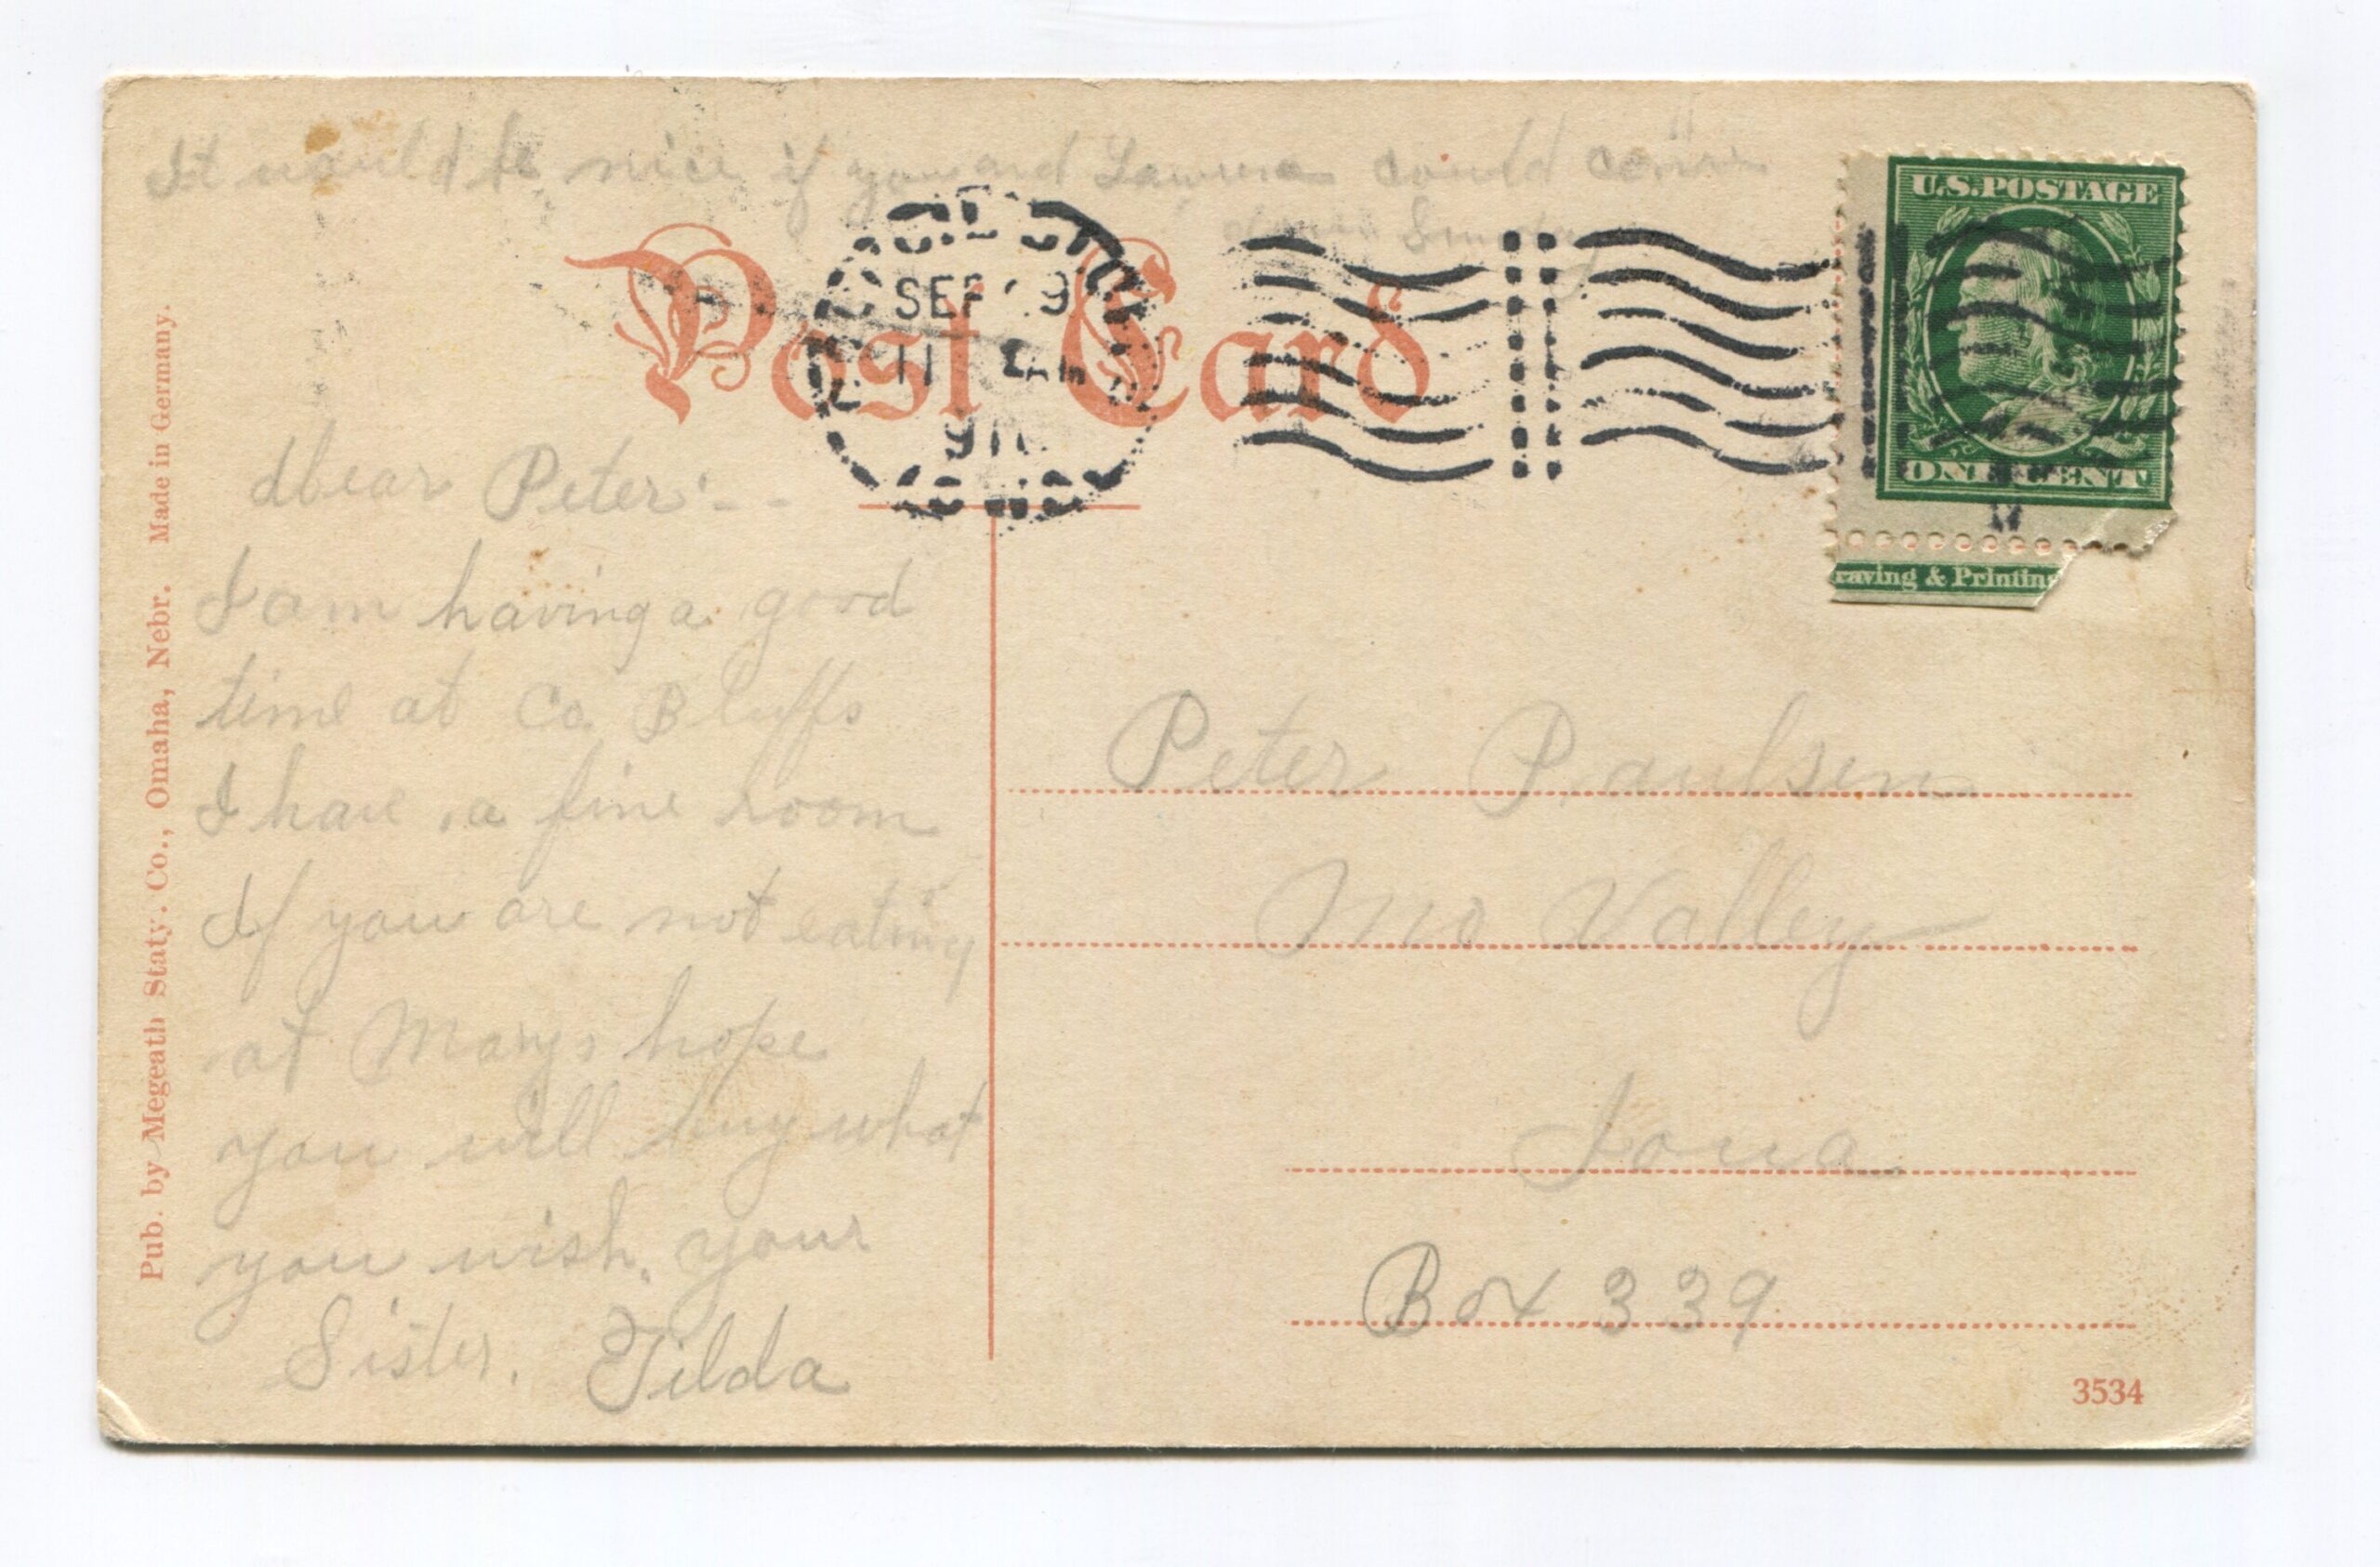 It would be nice if you and could come
down Sunday
Post Card
SEP 9
11
U.S. POSTAGE
ONE CENT
raving & Printing
Pub. by Megeath Staty. Co., Omaha, Nebr. Made in Germany.
Dear Peter:--
I am having a good
time at Co. Bluffs
I have a fine room
If you are not eating
at Marys hope
you will buy what
you wish. your
Sister. Tilda
Peter Paulsen
Mo Valley
Iowa
Box 339
3534